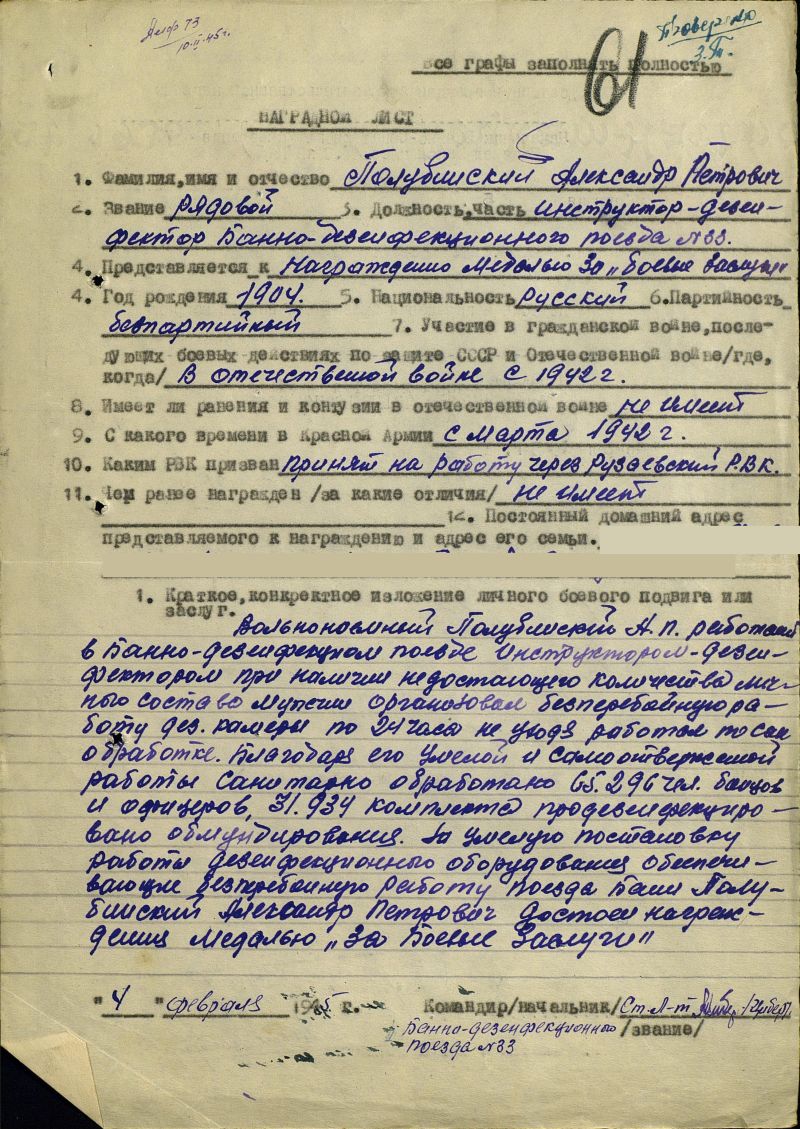 10.II.45г.
61
Все графы заполнять полностью
НАГРАДНОЙ ЛИСТ
1. Фамилия,имя и отчество Полубинский Александр Петрович
2. Звание Рядовой 3. Должность,часть Инструктор-дезин-
фектор Банно-дезинфекционного поезда №33.
4. Представляется к Награждению Медалью За „Боевые Заслуги"
4. Год рождения 1904. 5. Национальность Русский 6.Партийность
безпартийный 7. Участие в гражданской войне,после-
дующих боевых действиях по защите СССР и Отечественной войне/где,
когда/ В отечественной войне с 1942 г.
8. Имеет ли ранения и контузии в отечественной войне не имеет
9. С какого времени в Красной Армии с марта 1942 г.
10. Каким РВК призван принят на работу через Рузаевский Р.В.К.
11. Чем ранее награжден /за какие отличия/ не имеет
12. Постоянный домашний адрес
представляемого к награждению и адрес его семьи.
1. Краткое,конкретное изложение личного боевого подвига или
заслуг.
Вольнонаемный Полубинский А.П. работая
в Банно-дезинфекцион поезде Инструктором-дезин-
фектором при наличии недостающего количества лич-
ного состава мужчин организовал безперебойную ра-
боту дез. камеры по 24 часа не уходя работал по сан
обработке. Благодаря его умелой и самоотверженой
работы санитарно обработано 65.296 чел. бойцов
и офицеров, 31.934 комплекта продезинфекциро-
вано обмундирования. За умелую постановку
работы дезинфекционного оборудования обеспечи-
вающие безперебойную работу поезда Бани Полу-
бинский Александр Петрович достоен награж-
дения Медалью „За Боевые Заслуги"
"4" февраля 1945 г. Командир/начальник/ Ст. Л-т
Банно-дезинфекционного /звание/
поезда №33